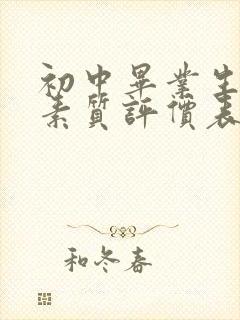 初中畢業生
素質評價表
和冬春